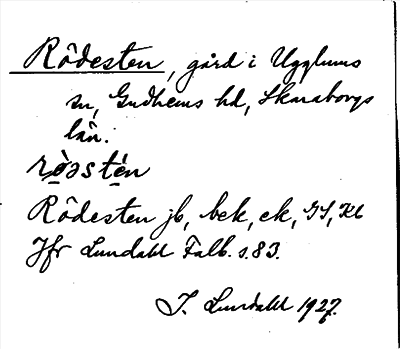 Rödesten, gård i Ugglums
sn, Gudhems hd, Skaraborgs
län.
Rödesten jb, bek, ek, GS, Kb
Jfr Lundahl Falb. s. 83.
I. Lundahl 1927.